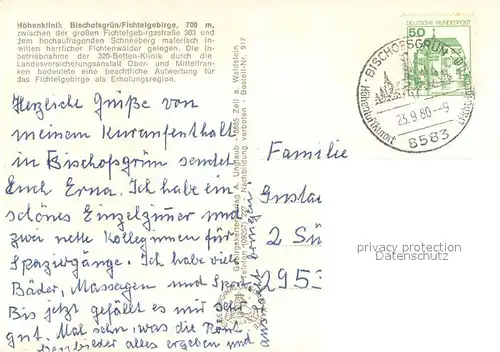 Höhenklinik Bischofsgrün/Fichtelgebirge, 700 m,
zwischen der großen Fichtelgebirgsstraße 303 und
dem hochaufragenden Schneeberg malerisch in-
mitten herrlicher Fichtenwälder gelegen. Die In-
betriebnahme der 320-Betten-Klinik durch die
Landesversicherungsanstalt Ober- und Mittelfran-
ken bedeutete eine beachtliche Aufwertung für
das Fichtelgebirge als Erholungsregion.
Herzliche Grüße von
meinem Kuraufenthalt
in Bischofsgrün sendet
Euch Erna. Ich habe ein
schönes Einzelzimmer und
zwei nette Kolleginnen für
Spaziergänge. Ich habe viel
Bäder, Massagen und Sport
Bis jetzt gefällt es mir sehr
gut. Mal sehn, was die
alles ergeben und
A. Unglaub 8665 Zell a. Waldstein
Nachbildung verboten - Bestell-Nr. 917
50
DEUTSCHE BUNDESPOST
BISCHOFSGRÜN
Höhenluftkurort
23.9.80-9
8583
Familie
Gusta
2 Sü
2953
privacy protection
Datenschutz